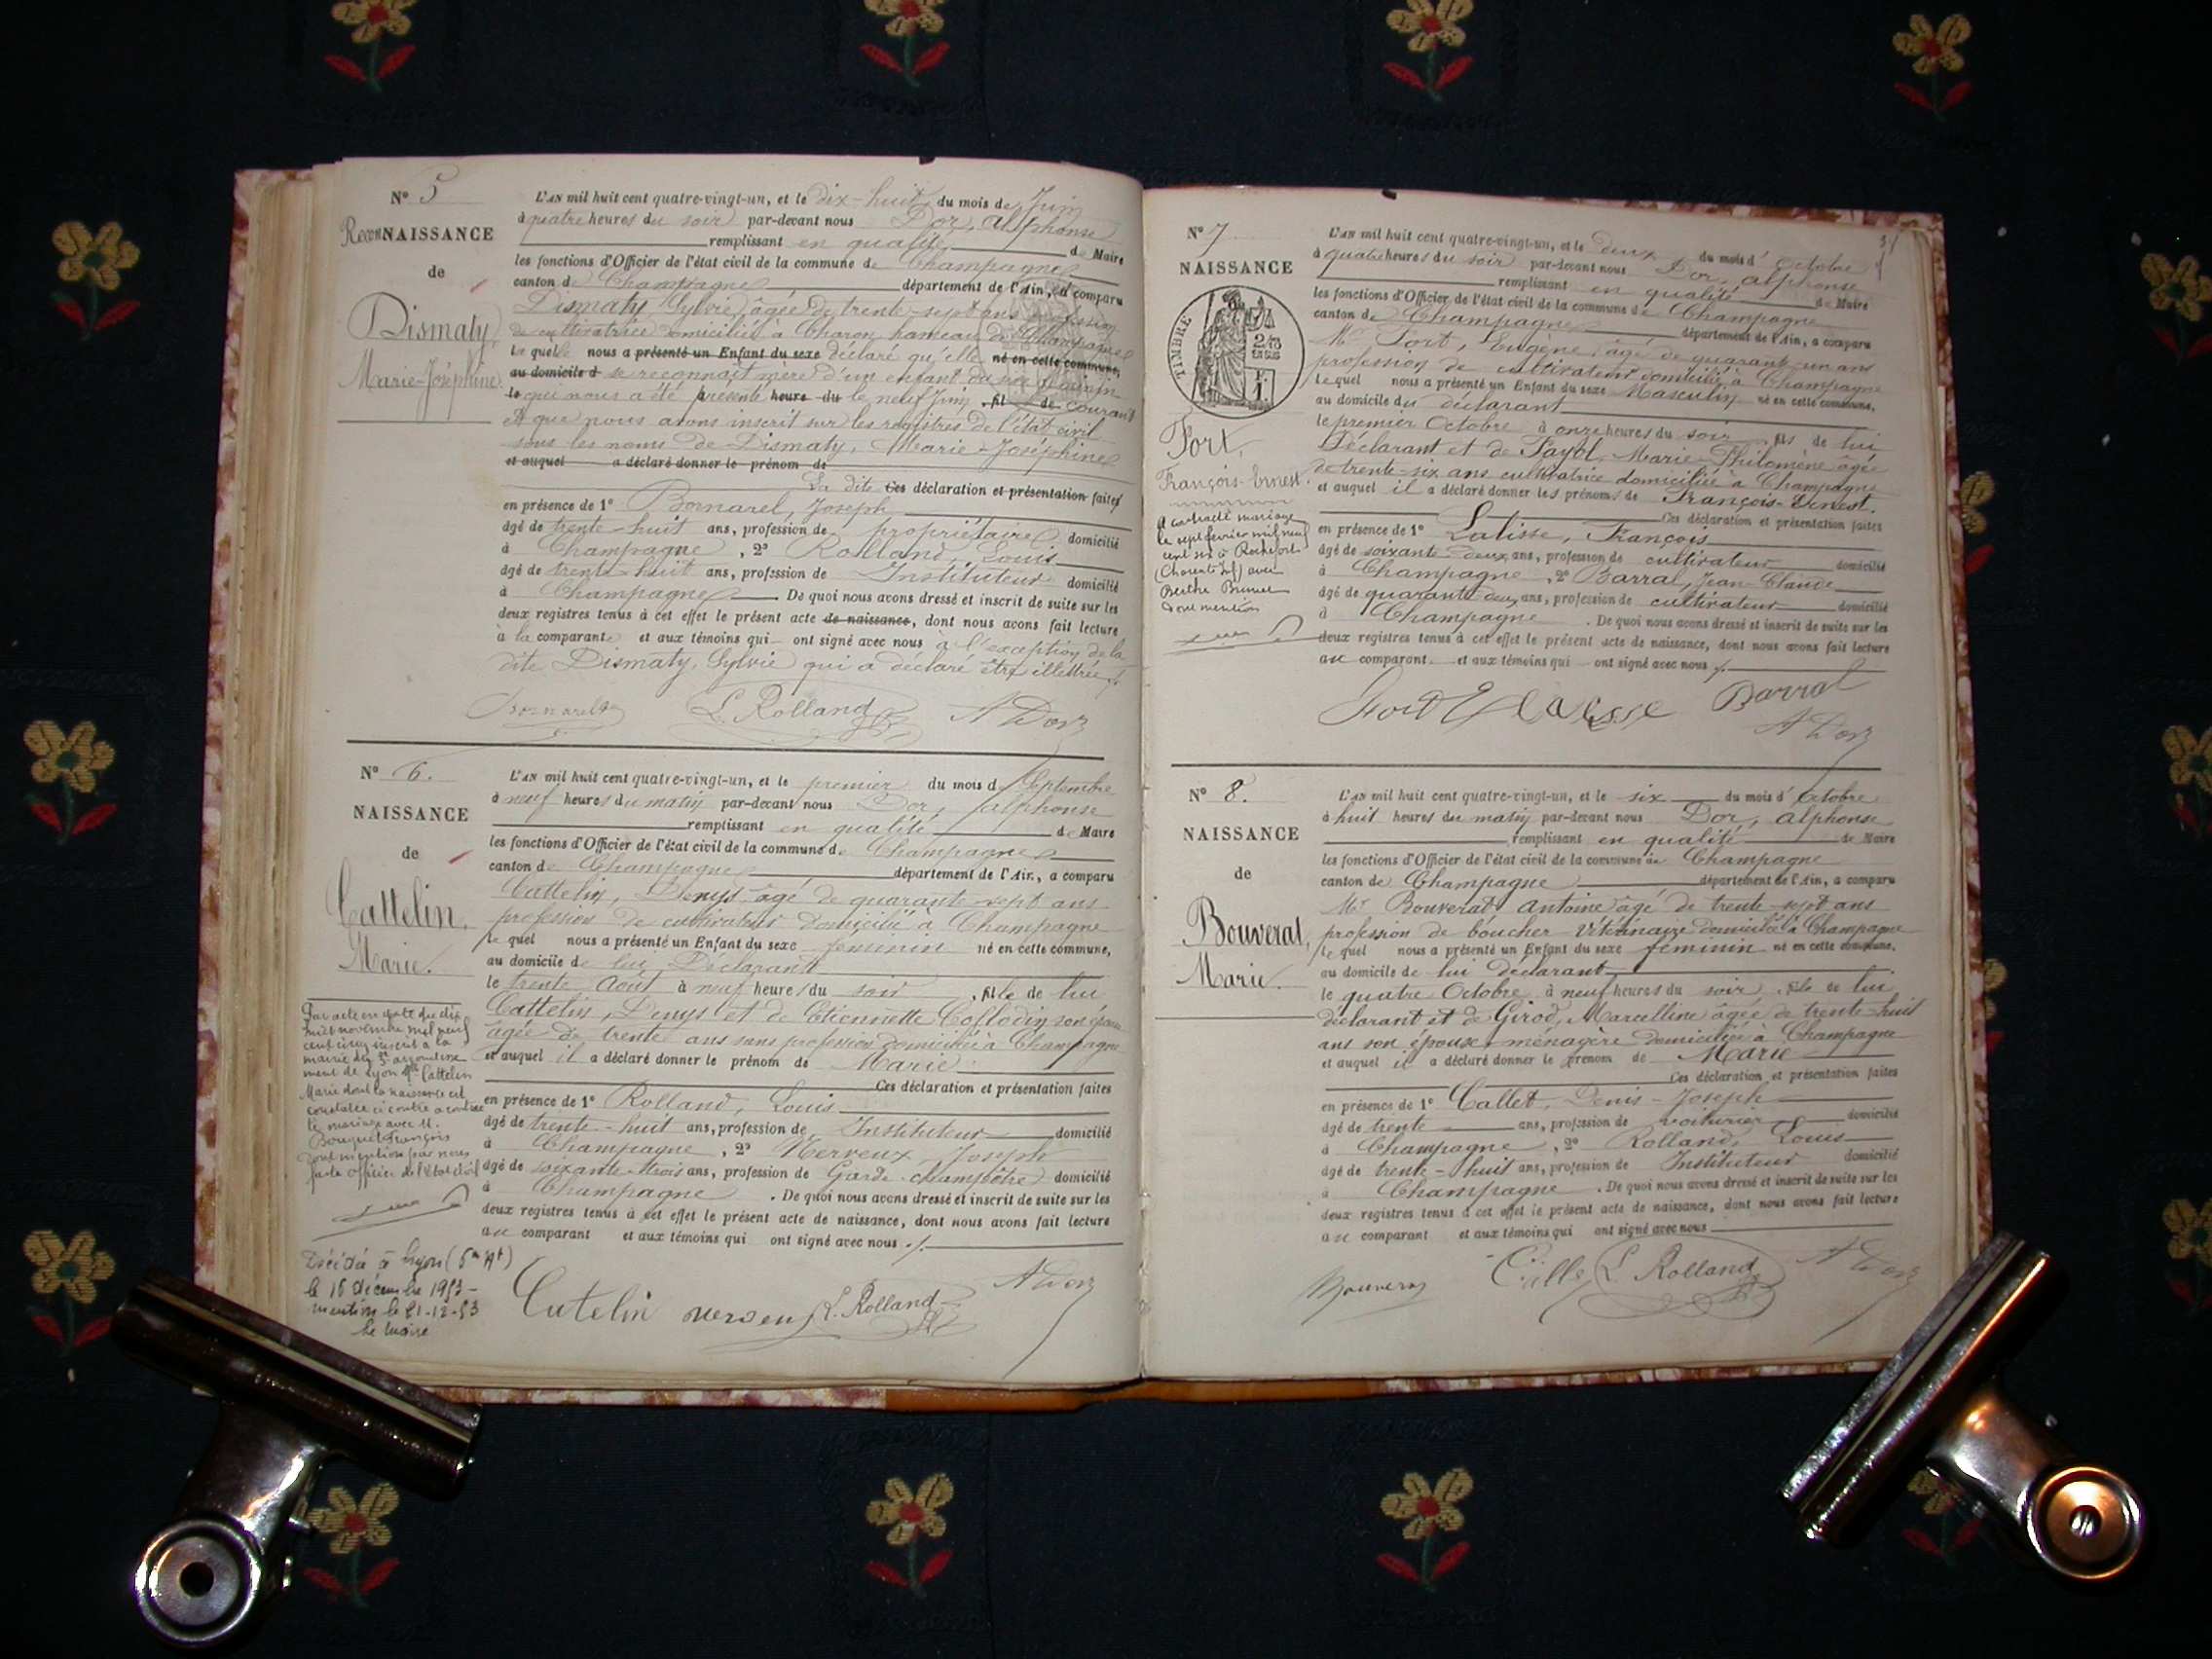 N° 5
RecoNNAISSANCE
de
Dismaty,
Marie-Joséphine.
L'AN mil huit cent quatre-vingt-un, et le dix-huit du mois de Juin
à quatre heures du soir par-devant nous Dor, alphonse
remplissant en qualité de Maire
les fonctions d'Officier de l'état civil de la commune de Champagne
canton de Champagne département de l'Ain, a comparu
Dismaty, Sylvie, âgée de trente-sept ans profession
de cultivatrice domiciliée à Charon, hameau de Champagne
Le quelle nous a présenté un Enfant du sexe déclaré qu'elle né en cette commune,
au domicile d se reconnaît mère d'un enfant du sexe féminin
le qui nous a été présenté heure du le neuf Juin fil de courant
Et que nous avons inscrit sur les registres de l'état civil
sous les noms de Dismaty, Marie-Joséphine
et auquel a déclaré donner le prénom de
La dite Ces déclaration et présentation faites
en présence de 1° Bornarel, Joseph
âgé de trente-huit ans, profession de propriétaire domicilié
à Champagne, 2° Rolland, Louis
âgé de trente-huit ans, profession de Instituteur domicilié
à Champagne. De quoi nous avons dressé et inscrit de suite sur les
deux registres tenus à cet effet le présent acte de naissance, dont nous avons fait lecture
à la comparante et aux témoins qui ont signé avec nous à l'exception de la
dite Dismaty, Sylvie qui a déclaré être illettrée
Bornarel L. Rolland A Dor
N° 6.
NAISSANCE
de
Cattelin,
Marie.
Par acte en date du dix
huit novembre mil neuf
cent cinq inscrit à la
mairie du 5e arrondisse
ment de Lyon Mlle Cattelin
Marie dont la naissance est
constatée ci contre a contracté
le mariage avec M.
Bouquet François
dont mention par nous
faite officier de l'état civil
Décédé à Lyon (5me Art)
le 16 décembre 1953 -
mention le 21-12-53
Le maire
L'AN mil huit cent quatre-vingt-un, et le premier du mois de Septembre
à neuf heures du matin par-devant nous Dor, alphonse
remplissant en qualité de Maire
les fonctions d'Officier de l'état civil de la commune de Champagne
canton de Champagne département de l'Ain, a comparu
Cattelin, Denys âgé de quarante-sept ans
profession de cultivateur domicilié à Champagne
Le quel nous a présenté un Enfant du sexe féminin né en cette commune,
au domicile de lui Déclarant
le trente Août à neuf heures du soir, fille de lui
Cattelin, Denys et de Etiennette Collodin son épouse
âgée de trente ans sans profession domiciliée à Champagne
et auquel il a déclaré donner le prénom de Marie.
Ces déclaration et présentation faites
en présence de 1° Rolland, Louis
âgé de trente-huit ans, profession de Instituteur domicilié
à Champagne, 2° Nerveux, Joseph
âgé de soixante-trois ans, profession de Garde-champêtre domicilié
à Champagne. De quoi nous avons dressé et inscrit de suite sur les
deux registres tenus à cet effet le présent acte de naissance, dont nous avons fait lecture
au comparant et aux témoins qui ont signé avec nous
Catelin L. Rolland A Dor
N° 7
NAISSANCE
TIMBRE
Fort,
François-Ernest.
A contracté mariage
le sept février mil neuf
cent six à Rochefort
(Charente Inf) avec
Berthe Brunet
dont mention
L'AN mil huit cent quatre-vingt-un, et le deux du mois d'octobre
à quatre heures du soir par-devant nous Dor, alphonse
remplissant en qualité de Maire
les fonctions d'Officier de l'état civil de la commune de Champagne
canton de Champagne département de l'Ain, a comparu
Mr Fort, Eugène, âgé de quarante-un ans
profession de cultivateur domicilié à Champagne
Le quel nous a présenté un Enfant du sexe Masculin né en cette commune,
au domicile du déclarant
le premier Octobre à onze heures du soir, fils de lui
Déclarant et de Payot, Marie-Philomène âgée
de trente-six ans cultivatrice domiciliée à Champagne
et auquel il a déclaré donner les prénoms de François-Ernest.
Ces déclaration et présentation faites
en présence de 1° Lalisse, François
âgé de soixante-deux ans, profession de cultivateur domicilié
à Champagne, 2° Barral, Jean-Claude
âgé de quarante-deux ans, profession de cultivateur domicilié
à Champagne. De quoi nous avons dressé et inscrit de suite sur les
deux registres tenus à cet effet le présent acte de naissance, dont nous avons fait lecture
au comparant et aux témoins qui ont signé avec nous
Fort E Lalisse Barral
A Dor
N° 8.
NAISSANCE
de
Bouverat,
Marie.
L'AN mil huit cent quatre-vingt-un, et le six du mois d'octobre
à huit heures du matin par-devant nous Dor, alphonse
remplissant en qualité de Maire
les fonctions d'Officier de l'état civil de la commune de Champagne
canton de Champagne département de l'Ain, a comparu
Mr Bouverat Antoine âgé de trente-sept ans
profession de boucher-Vétérinaire domicilié à Champagne
Le quel nous a présenté un Enfant du sexe féminin né en cette commune,
au domicile de lui déclarant
le quatre Octobre à neuf heures du soir, fille de lui
déclarant et de Girod, Marcelline âgée de trente-huit
ans son épouse ménagère domiciliée à Champagne
et auquel il a déclaré donner le prénom de Marie
Ces déclaration et présentation faites
en présence de 1° Callet, Denis-Joseph
âgé de trente ans, profession de voiturier domicilié
à Champagne, 2° Rolland, Louis
âgé de trente-huit ans, profession de Instituteur domicilié
à Champagne. De quoi nous avons dressé et inscrit de suite sur les
deux registres tenus à cet effet le présent acte de naissance, dont nous avons fait lecture
au comparant et aux témoins qui ont signé avec nous
Bouverat L. Rolland A Dor